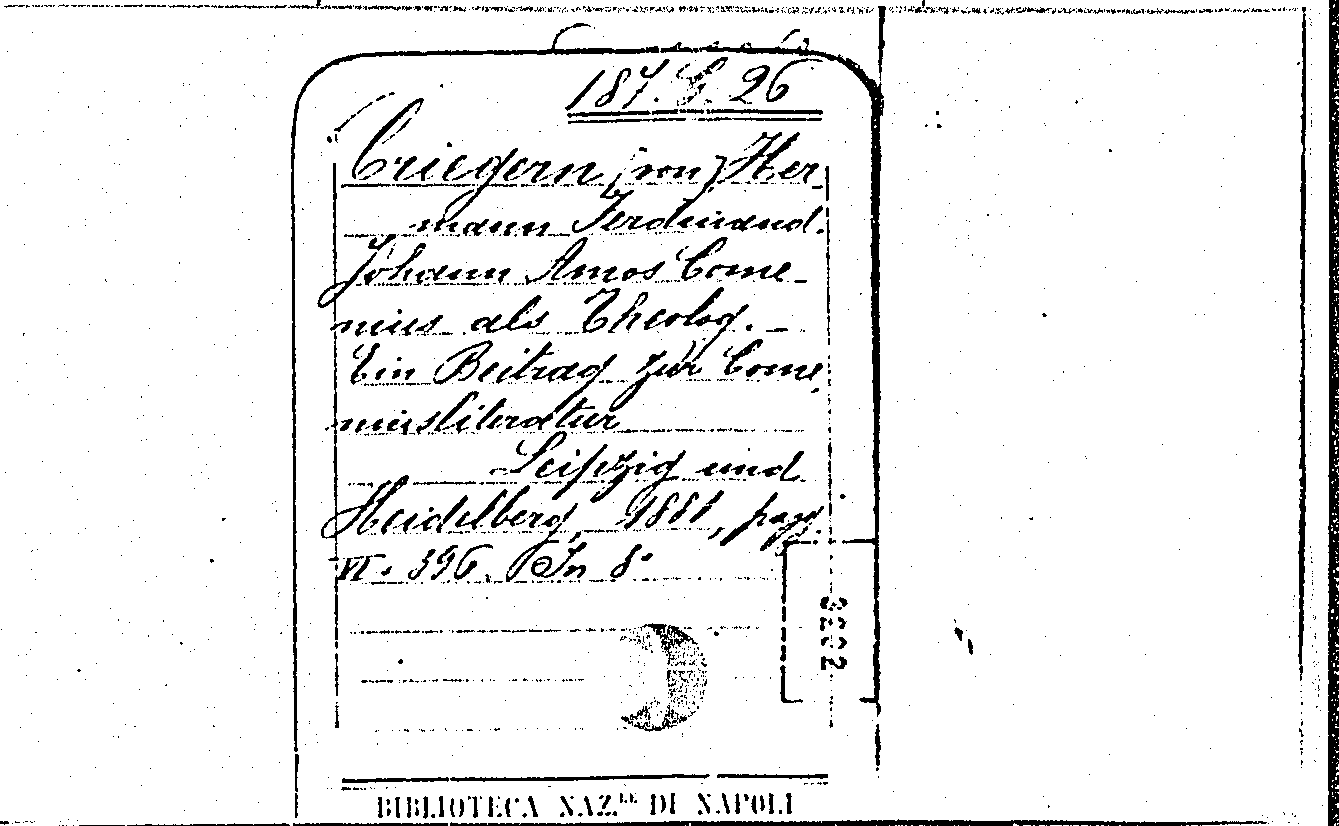 187. G. 26
Criegern (von) Her-
mann Ferdinand.
Johann Amos Come-
nius als Theolog. -
Ein Beitrag zur Come-
niusliteratur
Leipzig und
Heidelberg, 1881, pag.
VI. 396. In 8°
BIBLIOTECA NAZ.LE DI NAPOLI